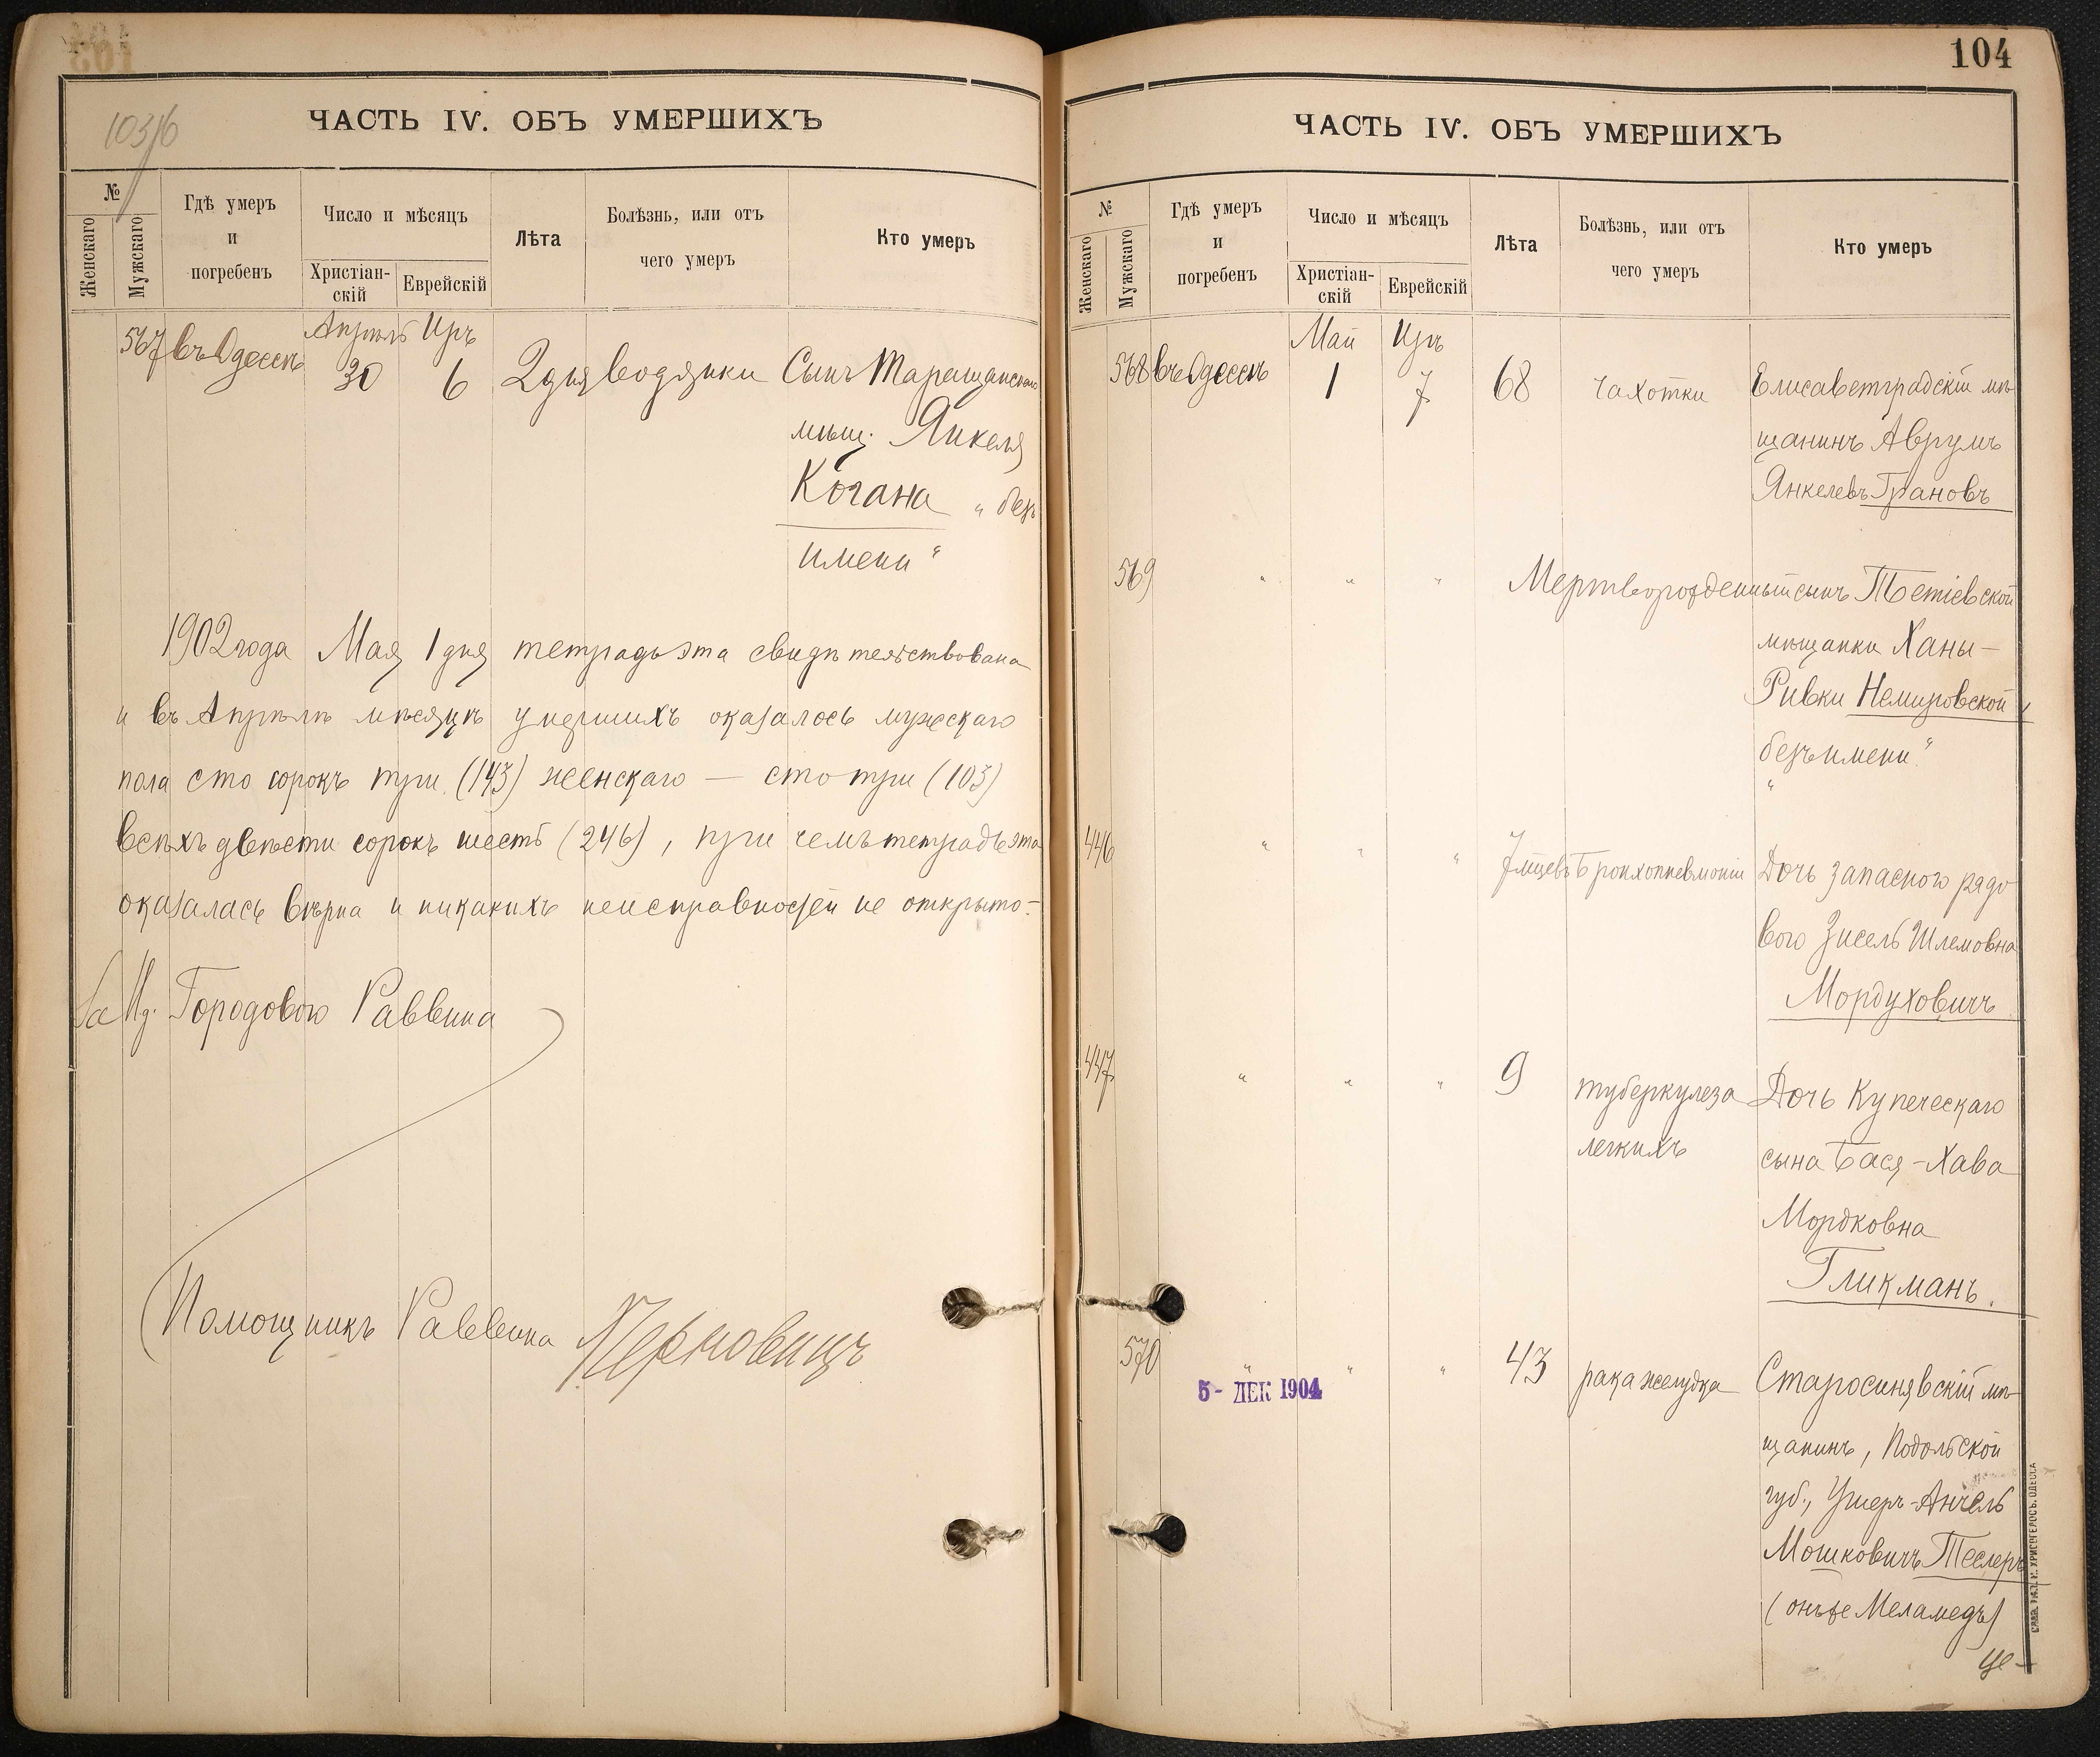 103/б
ЧАСТЬ IV. ОБЪ УМЕРШИХЪ
№
Женскаго
Мужскаго
Гдѣ умеръ
и
погребенъ
Число и мѣсяцъ
Христіан-
скій
Еврейскій
Лѣта
Болѣзнь, или отъ
чего умеръ
Кто умеръ
Апрѣль Иръ
567 въ Одессѣ 30 6 2 дня водянки Сынъ Таращанскаго
мѣщ. Янкеля
Когана „без
имени“
1902 года Мая 1 дня тетрадь эта свидѣтельствована
и въ Апрѣлѣ мѣсяцѣ умершихъ оказалось мужскаго
пола сто сорокъ три (143) женскаго — сто три (103)
всѣхъ двѣсти сорокъ шесть (246), при чемъ тетрадь эта
оказалась вѣрна и никакихъ неисправностей не открыто.-
За И.д. Городового Раввина
Помощникъ Раввина
104
ЧАСТЬ IV. ОБЪ УМЕРШИХЪ
№
Женскаго
Мужскаго
Гдѣ умеръ
и
погребенъ
Число и мѣсяцъ
Христіан-
скій
Еврейскій
Лѣта
Болѣзнь, или отъ
чего умеръ
Кто умеръ
Май Иръ
568 въ Одессѣ 1 7 68 чахотки Елисаветградскій мѣ-
щанинъ Аврумъ
Янкелевъ Грановъ
569 " " " Мертворожденный сынъ Тетіевской
мѣщанки Ханы-
Ривки Немировской,
„безъ имени“
446 " " " 7 мцевъ Бронхопневмоніи Дочь запасного рядо
вого Зисель Шлемовна
Мордуховичъ
447 " " " 9 туберкулеза Дочь Купеческаго
легкихъ сына Бася-Хава
Мордковна
Гликманъ.
570 " " " 43 рака желудка Старосинявскій мѣ-
5 - ДЕК 1904
щанинъ, Подольской
губ., Ушеръ-Анчель
Мошковичъ Теслеръ
(онъ же Меламедъ)